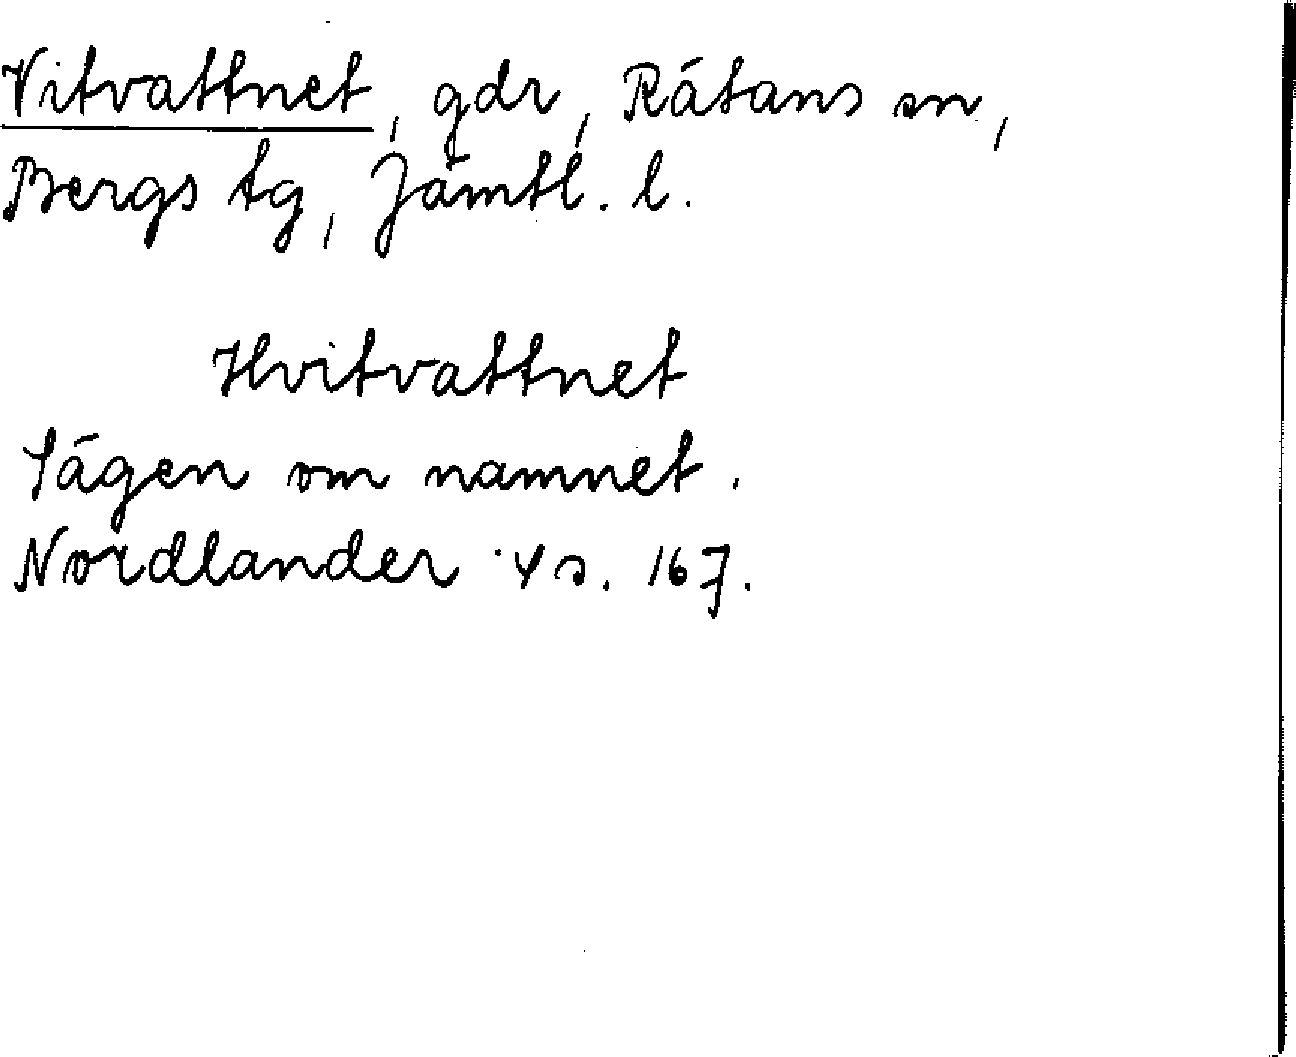 Vitvattnet, gdr, Rätans sn,
Bergs tg, Jämtl. l.
Hvitvattnet
Sägen om namnet.
Nordlander 4 s. 167.